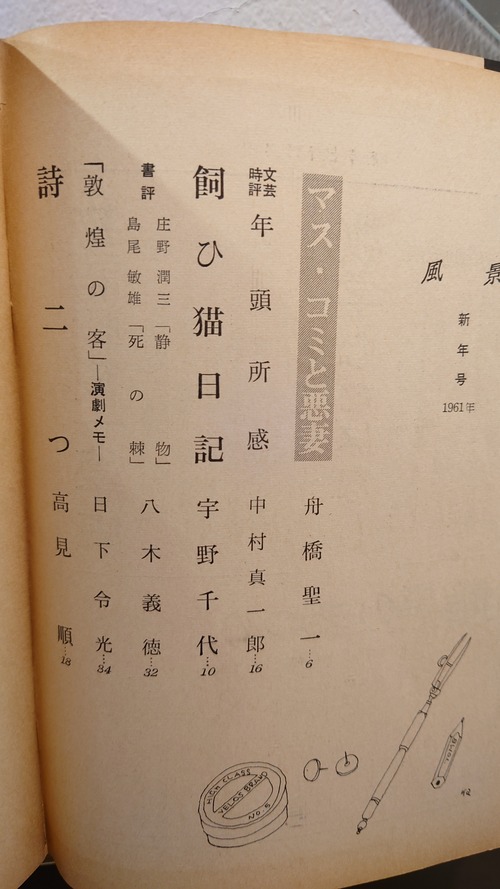 風景
新年号
1961年
マス・コミと悪妻 舟橋聖一…6
文芸時評 年頭所感 中村真一郎…16
飼ひ猫日記 宇野千代…10
書評 庄野潤三「静物」
島尾敏雄「死の棘」 八木義徳…32
「敦煌の客」―演劇メモ― 日下令光…34
詩二つ 高見順…18
HIGH CLASS
VELOS BRAND
NO. 5